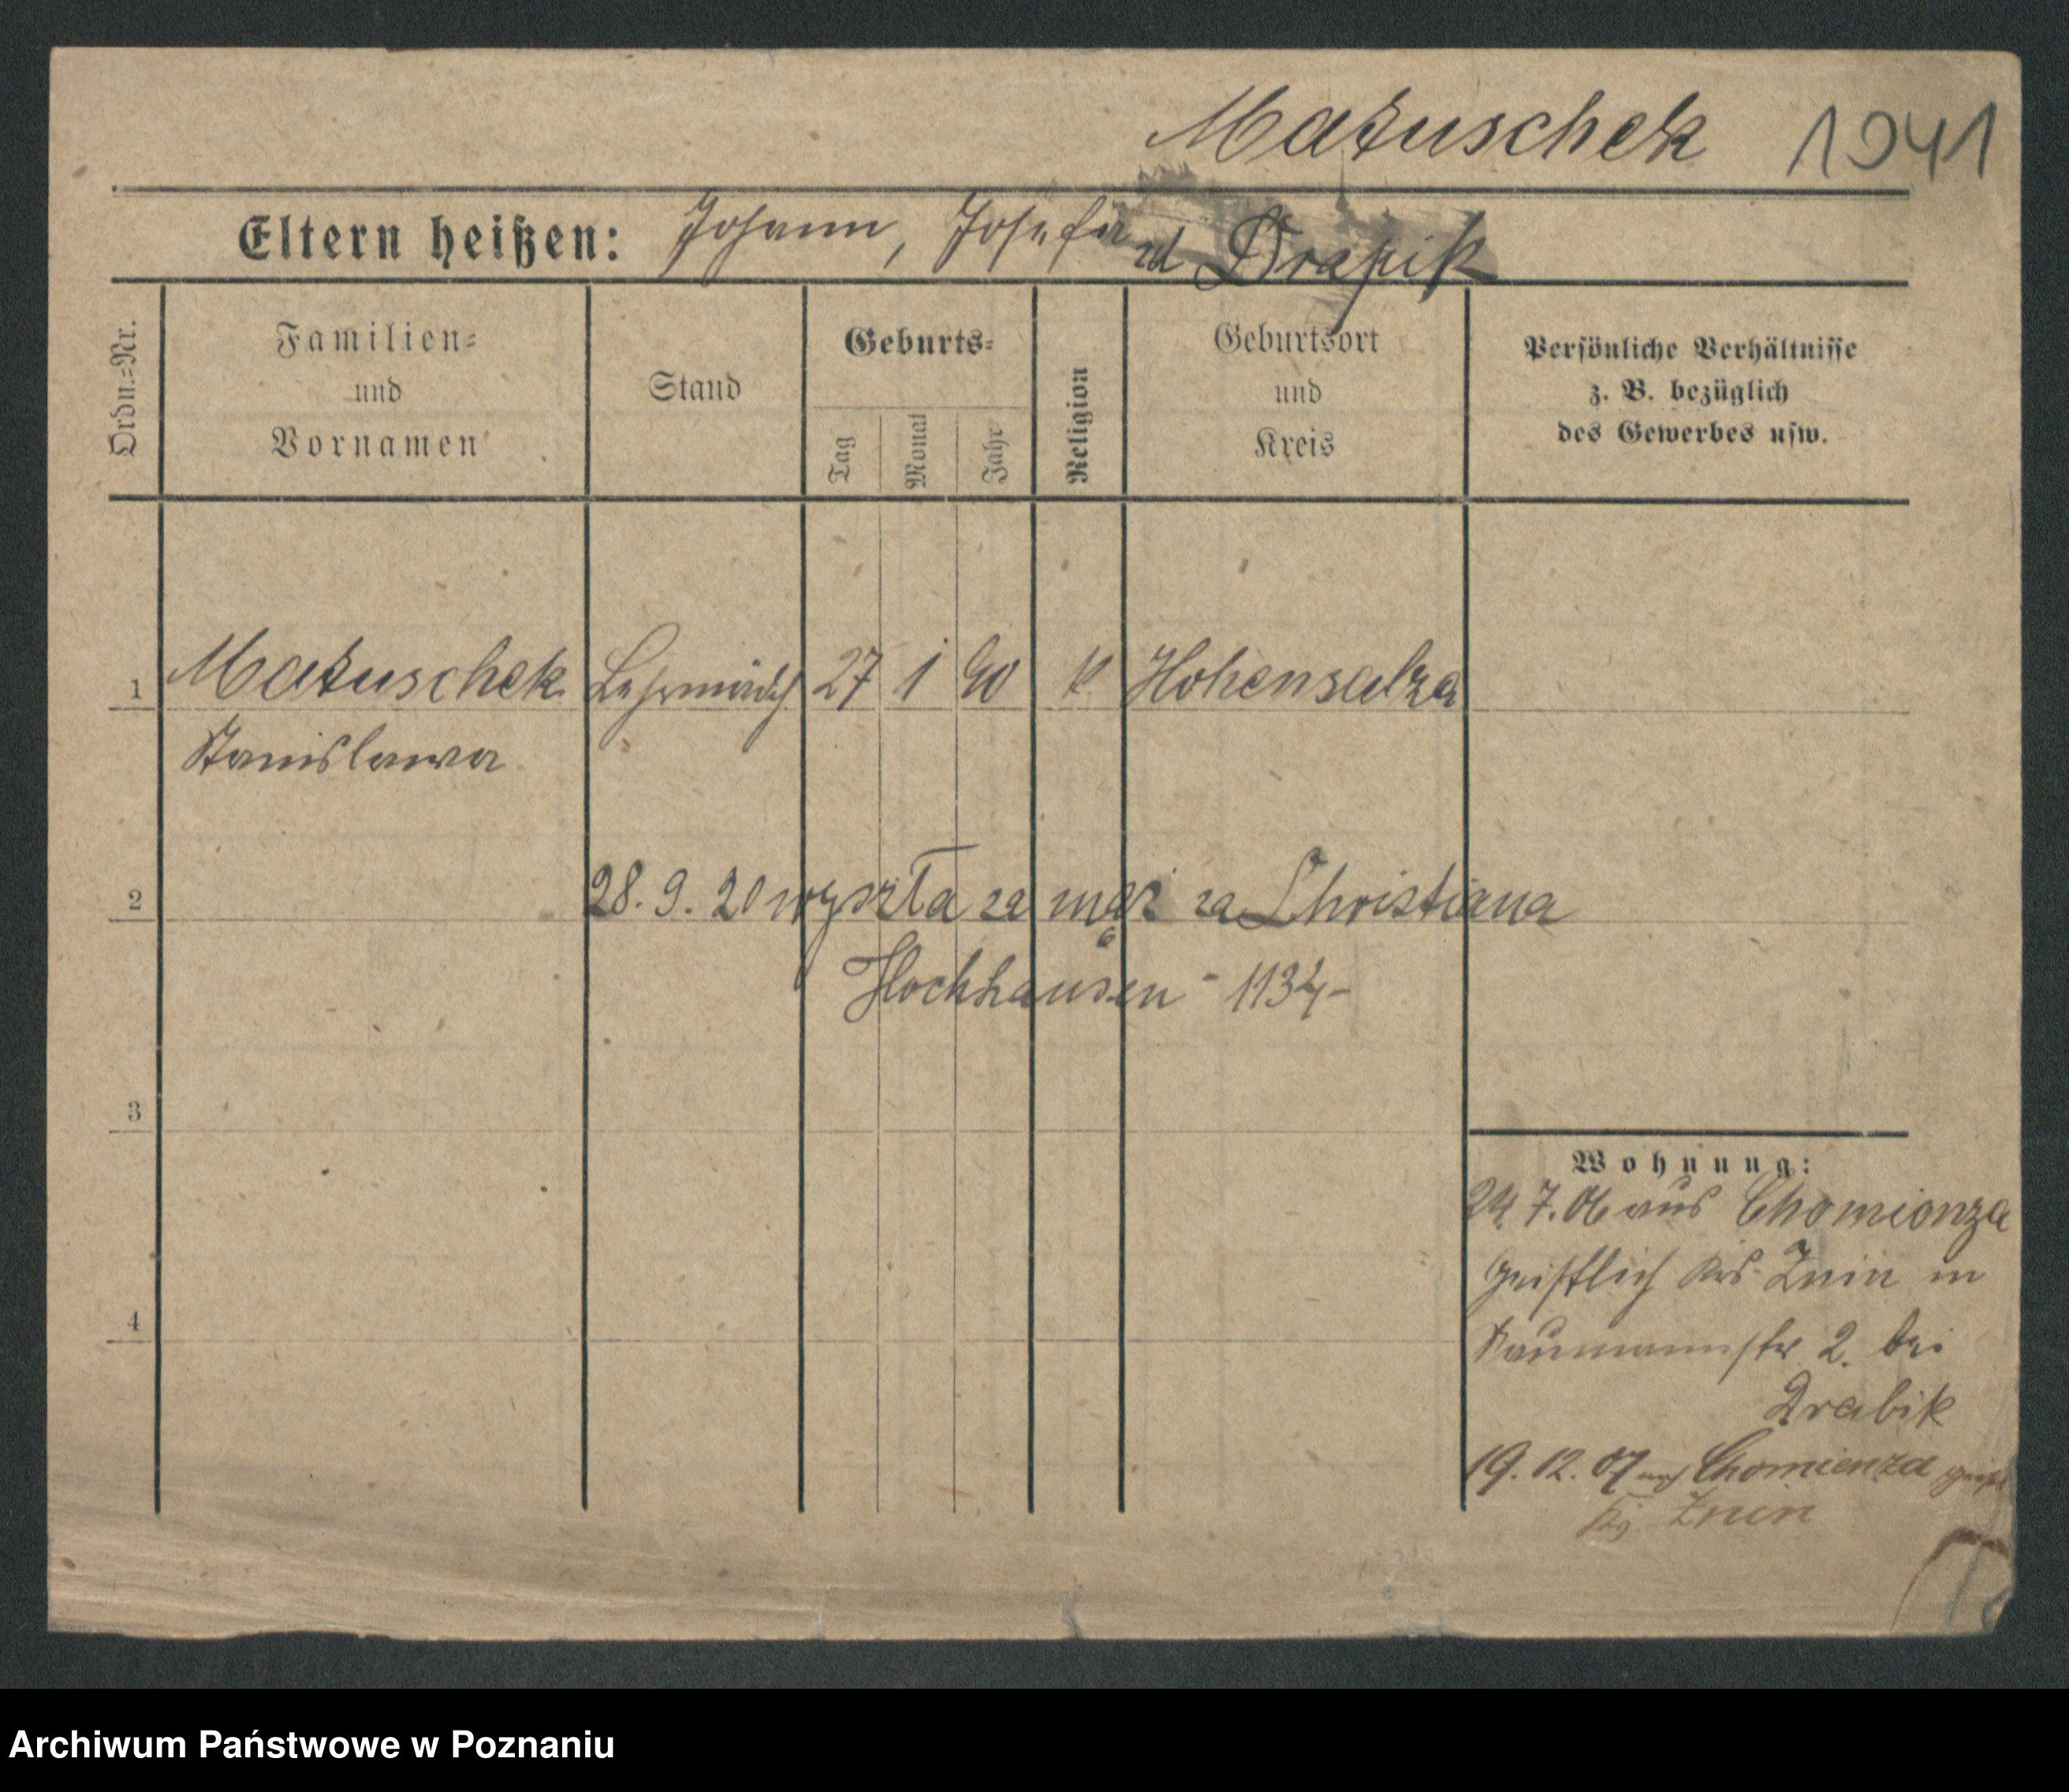 Matuschek 1941
Eltern heißen: Johann, Josefa zd Drapik
Ordn.=Nr.
Familien=
und
Vornamen
Stand
Geburts=
Tag
Monat
Jahr
Religion
Geburtsort
und
Kreis
Persönliche Verhältnisse
z. B. bezüglich
des Gewerbes usw.
1 Matuschek Lehrmädch 27 1 90 k. Hohensalza
Stanislawa
2 28. 9. 20 wyszła za mąż za Christiana
Hochhausen - 1134 -
3
Wohnung:
24. 7. 06 aus Chomionza
geistlich Krs. Znin in
Naumannstr 2. bei
4
Drabik
19. 12. 07 nach Chomienza geistl
Kr. Znin
Archiwum Państwowe w Poznaniu